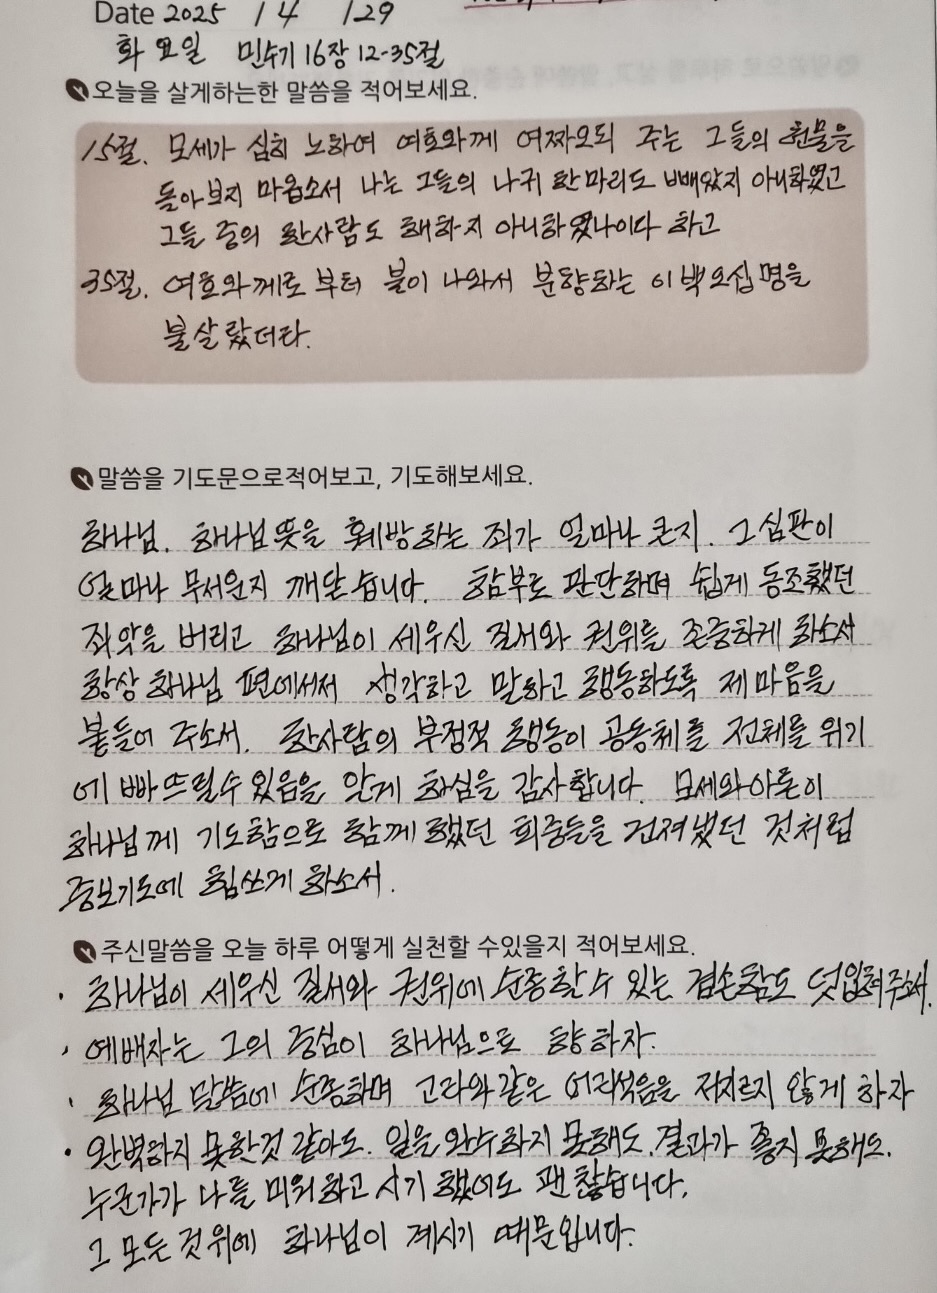 Date 2025 / 4 / 29
화요일 민수기 16장 12-35절
오늘을 살게하는한 말씀을 적어보세요.
15절. 모세가 심히 노하여 여호와께 여짜오되 주는 그들의 헌물을
돌아보지 마옵소서 나는 그들의 나귀 한마리도 빼앗지 아니하였고
그들 중의 한사람도 해하지 아니하였나이다 하고
35절. 여호와께로부터 불이 나와서 분향하는 이백오십명을
불살랐더라.
말씀을 기도문으로적어보고, 기도해보세요.
하나님. 하나님 뜻을 훼방하는 죄가 얼마나 큰지. 그 심판이
얼마나 무서운지 깨닫습니다. 함부로 판단하며 쉽게 동조했던
죄악을 버리고 하나님이 세우신 질서와 권위를 존중하게 하소서
항상 하나님 편에서서 생각하고 말하고 행동하도록 제 마음을
붙들어 주소서. 한사람의 부정적 행동이 공동체를 전체를 위기
에 빠뜨릴수 있음을 알게 하심을 감사합니다. 모세와 아론이
하나님께 기도함으로 함께 했던 회중들을 건져냈던 것처럼
중보기도에 힘쓰게 하소서.
주신말씀을 오늘 하루 어떻게 실천할 수있을지 적어보세요.
· 하나님이 세우신 질서와 권위에 순종할 수 있는 겸손함도 덧입혀주소서.
· 예배자는 그의 중심이 하나님으로 향하자.
· 하나님 말씀에 순종하며 고라와 같은 어리석음을 저지르지 않게 하자
· 완벽하지 못한것 같아도. 일을 완수하지 못해도. 결과가 좋지 못해도.
누군가가 나를 미워하고 시기 했어도 괜찮습니다.
그 모든 것 위에 하나님이 계시기 때문입니다.